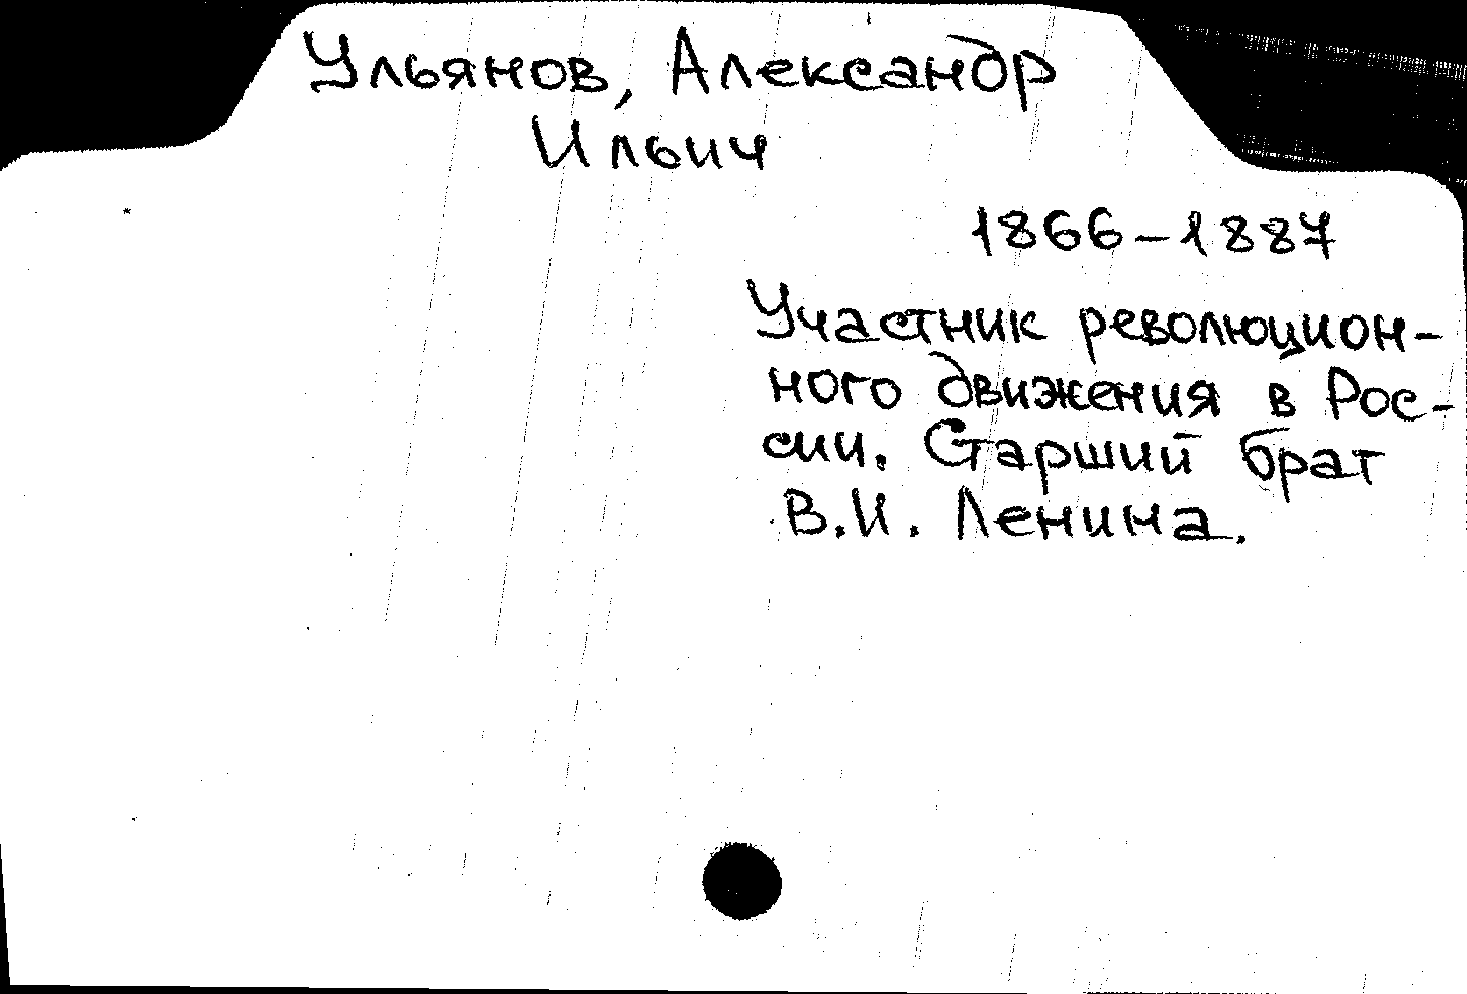 Ульянов, Александр
Ильич
1866-1887
Участник революцион-
ного движения в Рос-
сии. Старший брат
В.И. Ленина.